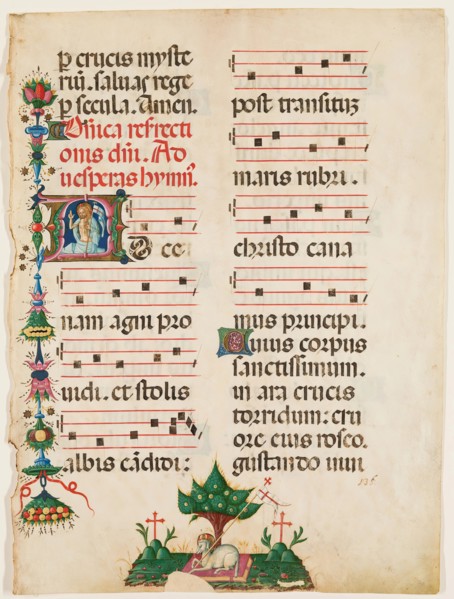 ꝑ crucis myste
riū. saluas rege
ꝑ secula. Amen.
Dn̄ica resrecti
onis dn̄i. Ad
uesperas hymn̄.
AD ce
nam agni pro
uidi. et stolis
albis cādidi:
post transituʒ
maris rubri.
christo cana
mus principi.
Cuius corpus
sanctissimum.
in ara crucis
torridum: cru
ore eius roseo.
gustando uiui